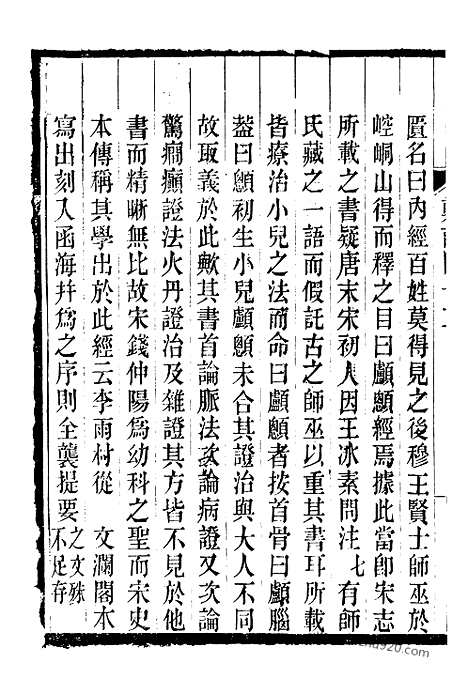 匱名曰內經百姓莫得見之後穆王賢士師巫於
崆峒山得而釋之目曰顱顖經焉據此當卽宋志
所載之書疑唐末宋初人因王冰素問注 七 有師
氏藏之一語而假託古之師巫以重其書耳所載
皆療治小兒之法而命曰顱顖者按首骨曰顱腦
葢曰顖初生小兒顱顖未合其證治與大人不同
故取義於此歟其書首論脈法次論病證又次論
驚癇癲證法火丹證治及雜證其方皆不見於他
書而精晰無比故宋錢仲陽爲幼科之聖而宋史
本傳稱其學出於此經云李雨村從 文瀾閣本
寫出刻入函海幷爲之序則全襲提要 之文殊
不足存